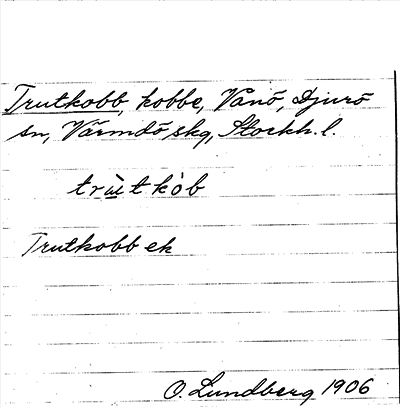 Trutkobb, kobbe, Vanö, Djurö
sn, Värmdö skg, Stockh. l.
trùtkòb
Trutkobb ek
O. Lundberg 1906